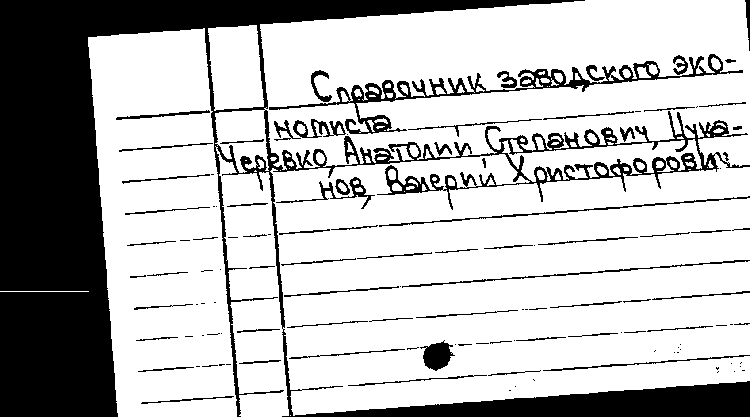 Справочник заводского эко-
номиста.
Черевко, Анатолий Степанович, Цука-
нов, Валерий Христофорович.